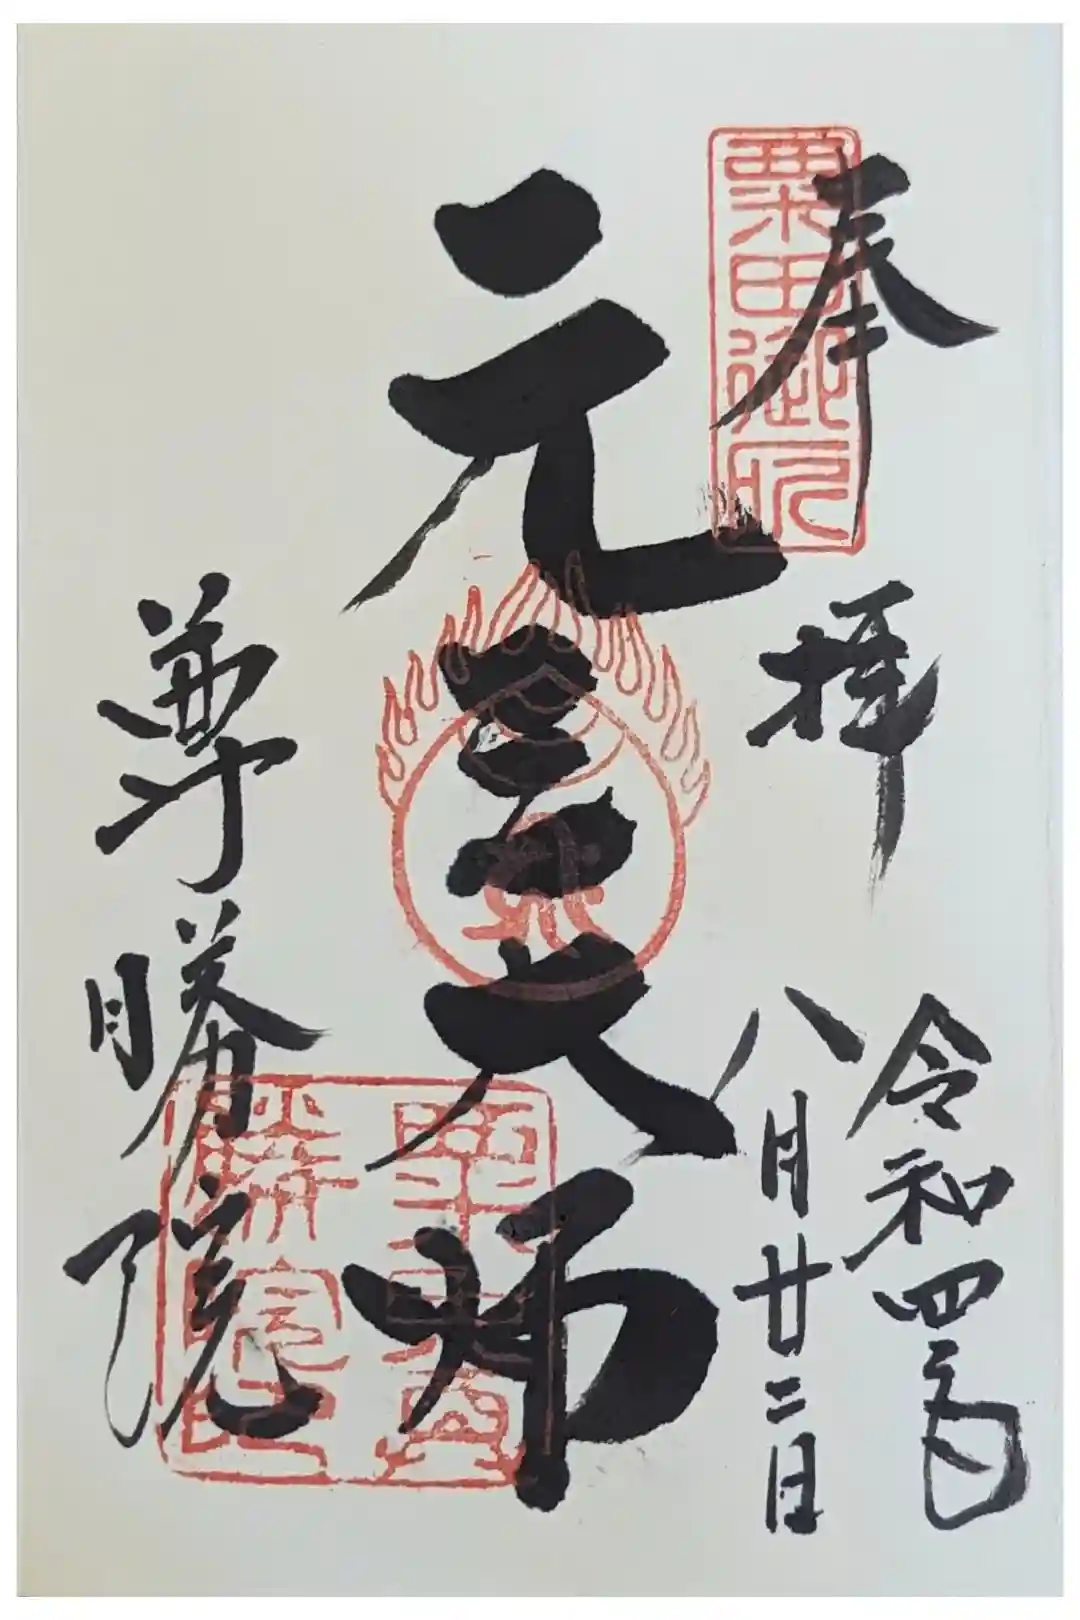 奉拝
令和四年
八月廿二日
元三大師
尊勝院
粟田御所